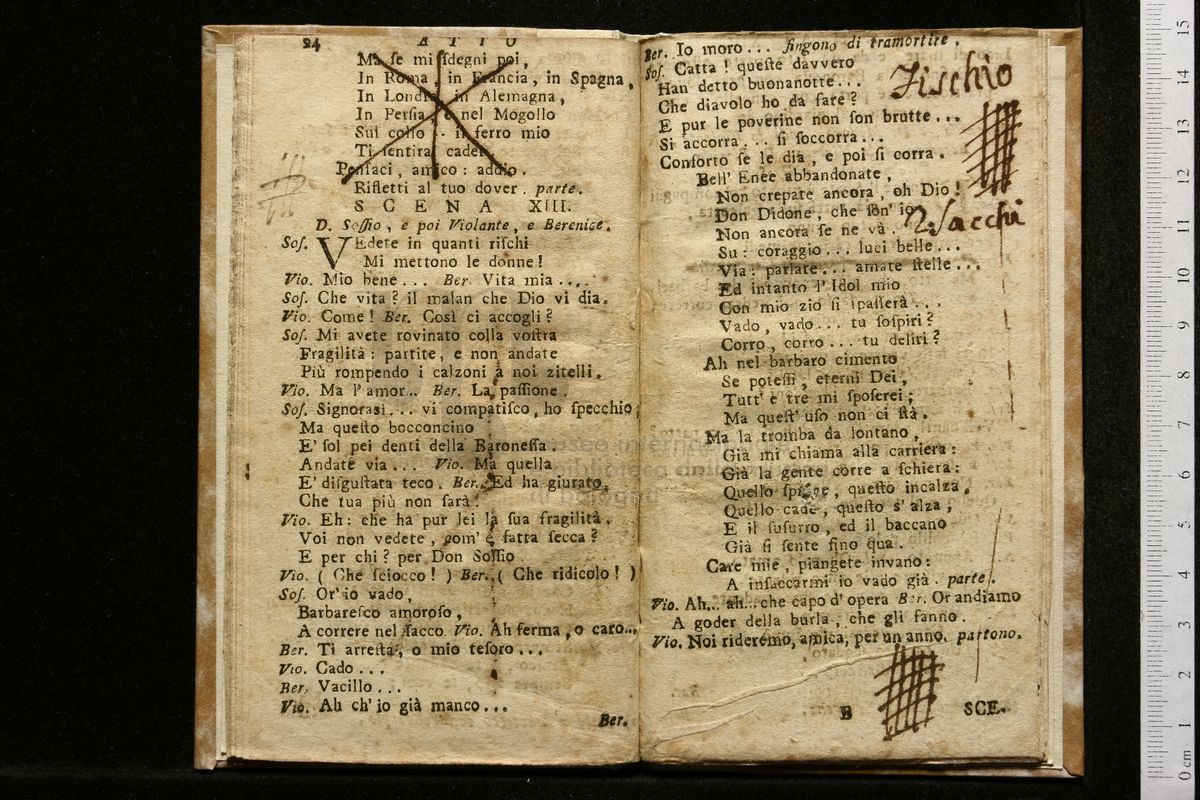 24 ATTO
Ma se mi sdegni poi,
In Roma, in Francia, in Spagna,
In Londra, in Alemagna,
In Persia, e nel Mogollo
Sul collo .. il ferro mio
Ti sentirai cader
Pensaci, amico: addio.
Rifletti al tuo dover. parte.
SCENA XIII.
D. Sossio, e poi Violante, e Berenice.
Sos. VEdete in quanti rischi
Mi mettono le donne!
Vio. Mio bene... Ber. Vita mia....
Sos. Che vita? il malan che Dio vi dia.
Vio. Come! Ber. Così ci accogli?
Sos. Mi avete rovinato colla vostra
Fragilità: partite, e non andate
Più rompendo i calzoni à noi zitelli.
Vio. Ma l'amor... Ber. La passione.
Sos. Signorasì... vi compatisco, ho specchio;
Ma questo bocconcino
E' sol pei denti della Baronessa.
Andate via... Vio. Ma quella
E' disgustata teco. Ber. Ed ha giurato,
Che tua più non sarà.
Vio. Eh: che ha pur lei la sua fragilità.
Voi non vedete, com' è fatta secca?
E per chi? per Don Sossio
Vio. (Che sciocco!) Ber. (Che ridicolo!)
Sos. Or' io vado,
Barbaresco amoroso,
A correre nel sacco. Vio. Ah ferma, o caro...
Ber. Ti arresta, o mio tesoro...
Vio. Cado...
Ber. Vacillo...
Vio. Ah ch' io già manco...
Ber.
Ber. Io moro... fingono di tramortire.
Sos. Catta! queste davvero
Han detto buonanotte...
Fischio
Che diavolo ho da fare?
E pur le poverine non son brutte...
Si accorra... si soccorra...
Conforto se le dia, e poi si corra.
Bell' Enee abbandonate,
Non crepate ancora, oh Dio!
Don Didone, che son' io
Non ancora se ne và.
2. Sacchi
Su: coraggio... luci belle...
Via: parlate... amate stelle...
Ed intanto l' Idol mio
Con mio zio si spasserà...
Vado, vado... tu sospiri?
Corro, corro... tu deliri?
Ah nel barbaro cimento
Se potessi, eterni Dei,
Tutt' e tre mi sposerei;
Ma quest' uso non ci stà.
Ma la tromba da lontano,
Già mi chiama alla carriera:
Già la gente corre a schiera:
Quello spinge, questo incalza,
Quello cade, questo s' alza,
E il susurro, ed il baccano
Già si sente fino quà.
Care mie, piangete invano:
A insaccarmi io vado già. parte.
Vio. Ah... ah... che capo d' opera Ber. Or andiamo
A goder della burla, che gli fanno.
Vio. Noi rideremo, amica, per un anno. partono.
B SCE-